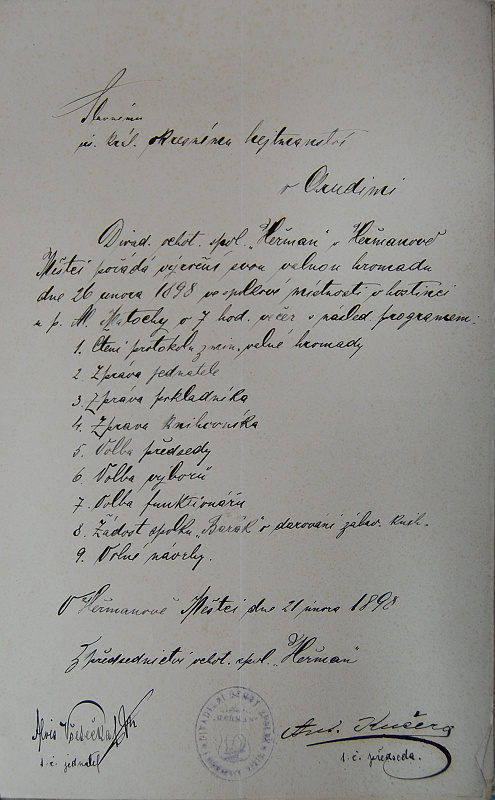 Slavnému
cís. král. okresnímu hejtmanství
v Chrudimi
Divad. ochot. spol. „Heřman“ v Heřmanově
Městci pořádá výroční svou valnou hromadu
dne 26 února 1898 ve spolkové místnosti v hostinci
u p. M. Matochy o 7 hod. večer s násled. programem:
1. Čtení protokolu z min. valné hromady
2. Zpráva jednatele
3. Zpráva pokladníka
4. Zpráva knihovníka
5. Volba předsedy
6. Volba výborů
7. Volba funktionářů
8. Žádost spolku „Barák“ o darování zábav. knih.
9. Volné návrhy.
V Heřmanově Městci dne 21 února 1898
Z předsednictví ochot. spol. „Heřman“
Alois
t. č. jednatel
Ant. Kučera
t. č. předseda.